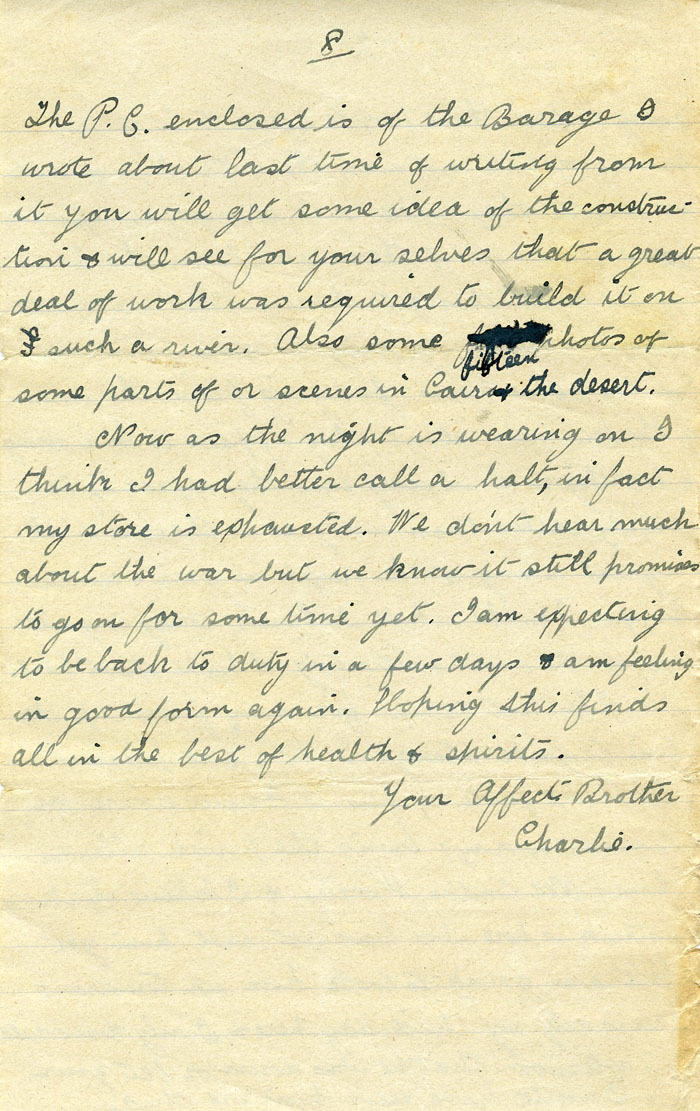 8
The P.C. enclosed is of the Barage I
wrote about last time of writing from
it you will get some idea of the construc-
tion & will see for your selves that a great
deal of work was required to build it on
such a river. Also some photos of
fifteen
some parts of or scenes in Cairo & the desert.
Now as the night is wearing on I
think I had better call a halt, in fact
my store is exhausted. We don't hear much
about the war but we know it still promises
to go on for some time yet. I am expecting
to be back to duty in a few days & am feeling
in good form again. Hoping this finds
all in the best of health & spirits.
Your Affect. Brother
Charlie.